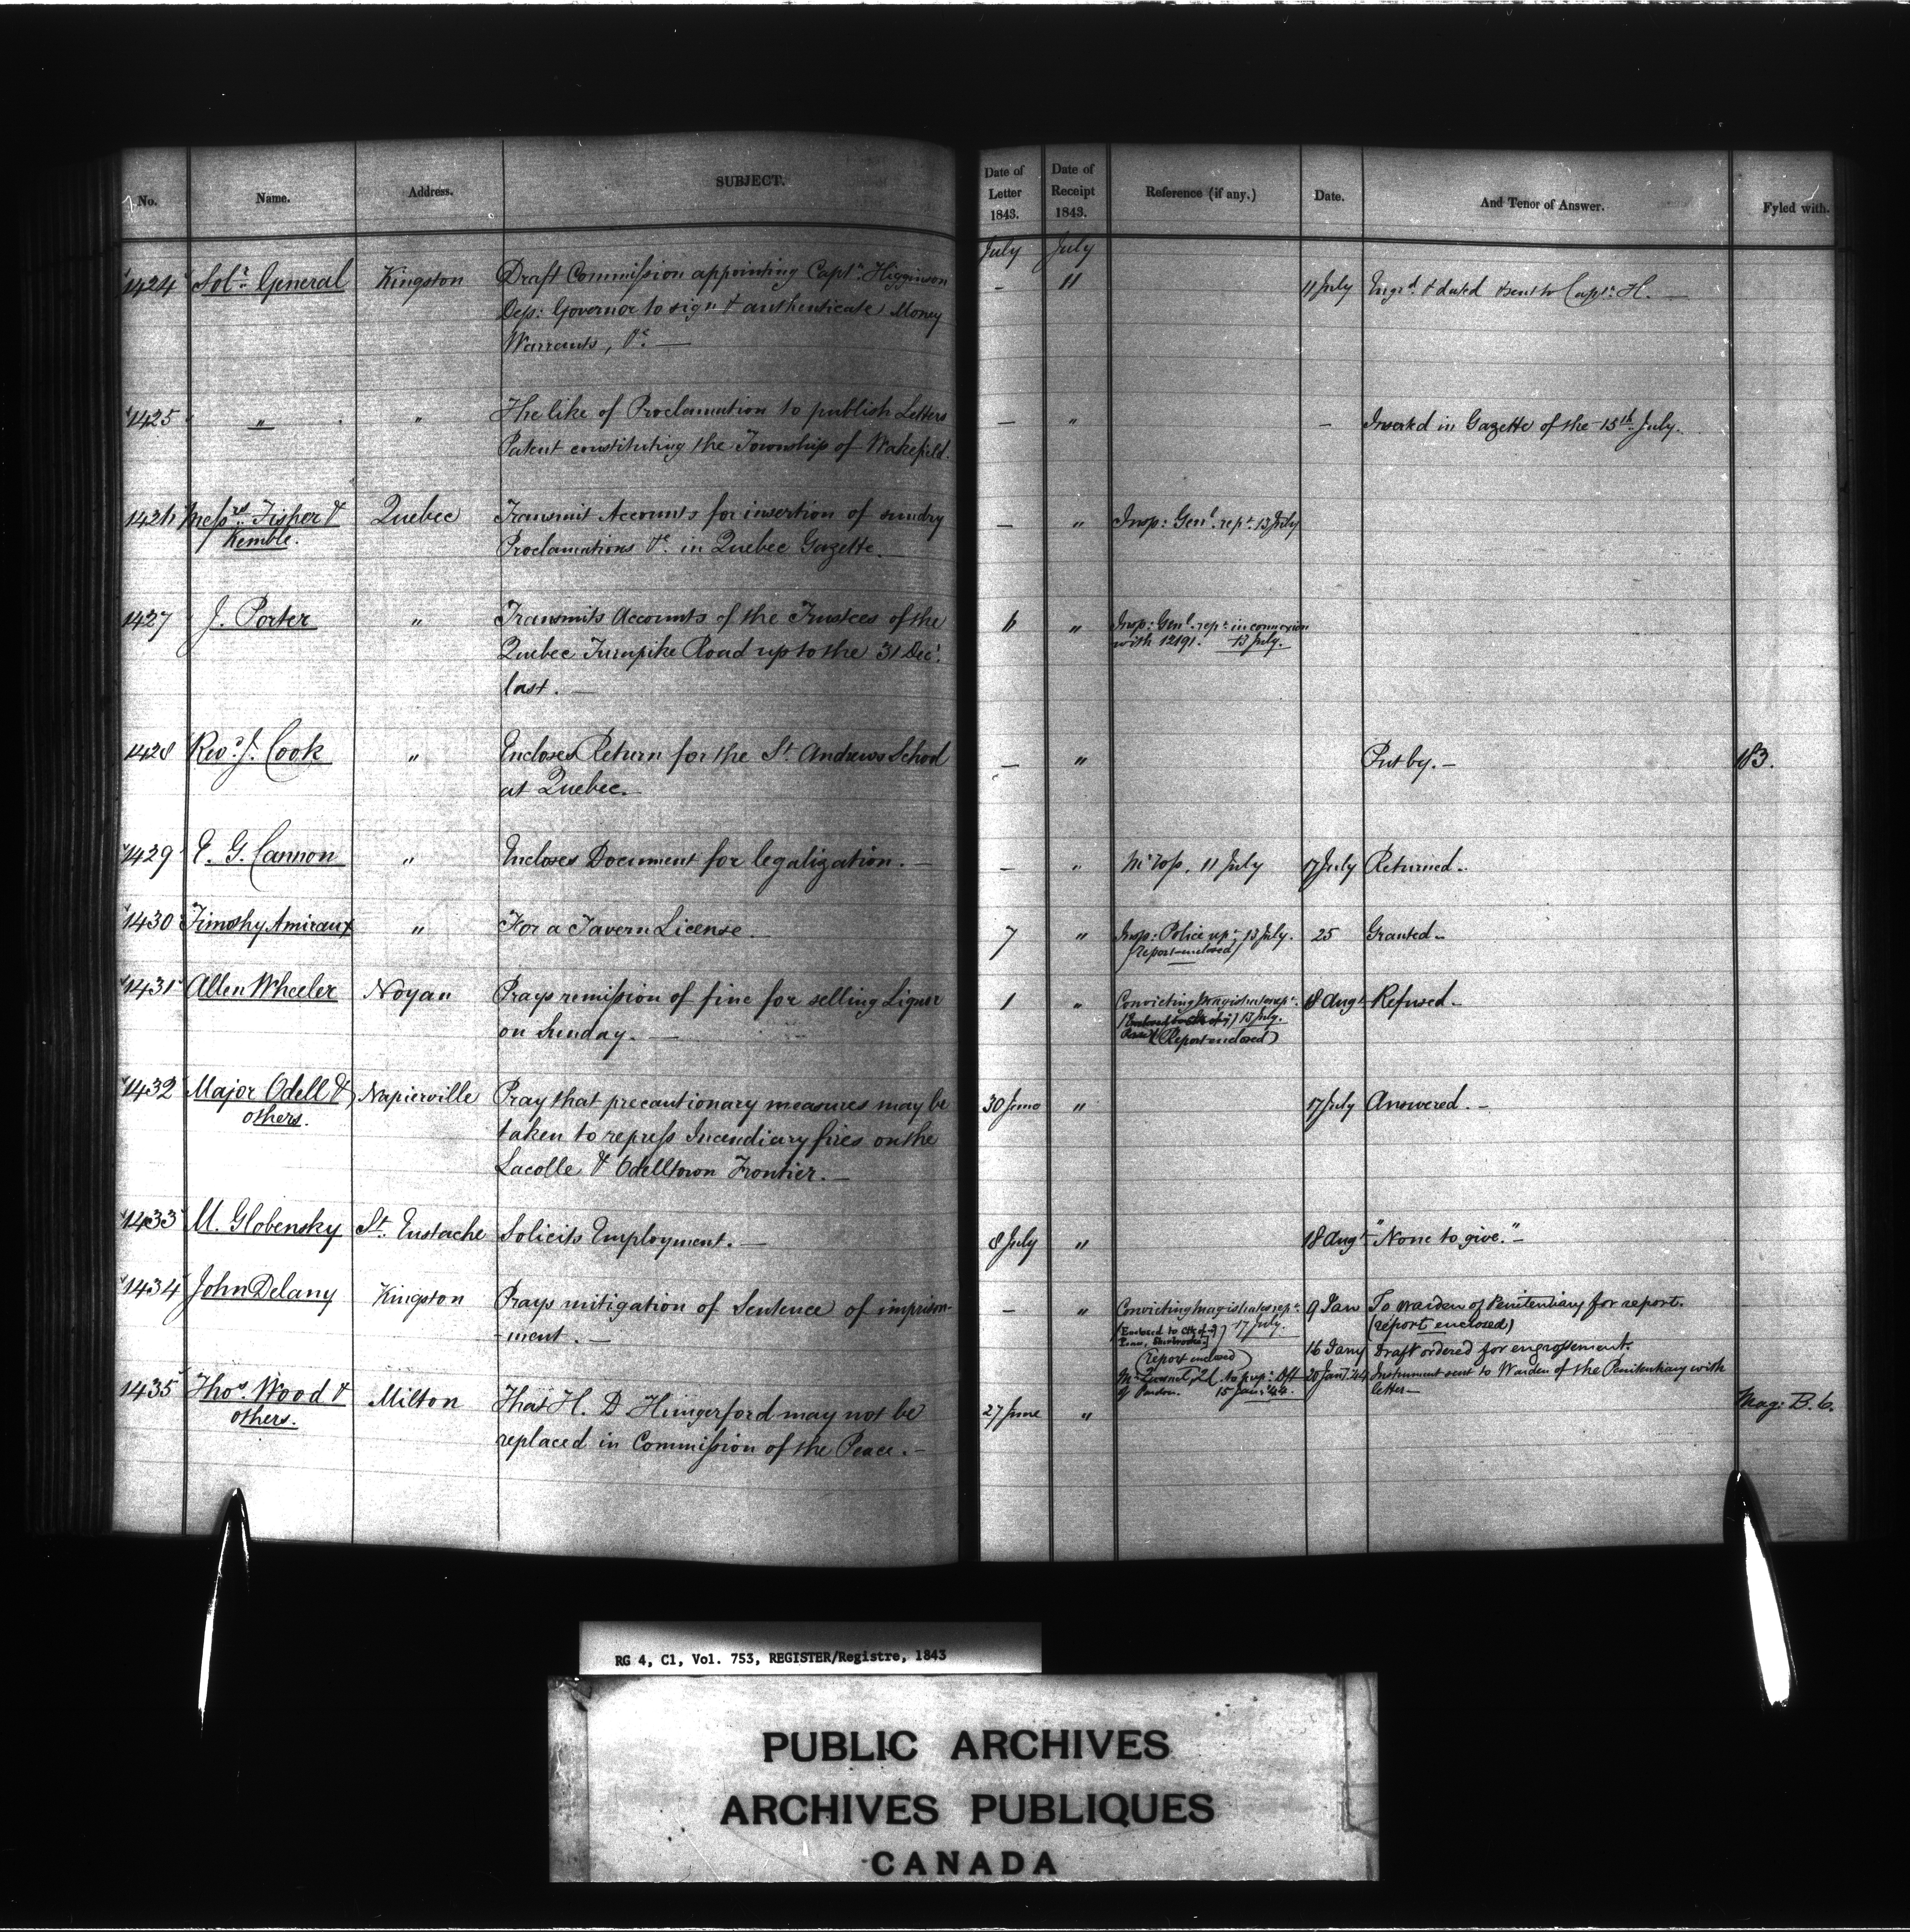 No. Name. Address. SUBJECT. Date of Letter 1843. Date of Receipt 1843. Reference (if any.) Date. And Tenor of Answer. Fyled with.
July July
1424 Solr. General Kingston Draft Commission appointing Captn. Higginson — 11 11 July Engrd. & dated & sent to Captn. H. —
Dep: Governor to sign & authenticate Money
Warrants, &c. —
1425 " " The like of Proclamation to publish Letters — " — Inserted in Gazette of the 15th July.
Patent constituting the Township of Wakefield.
1426 Messrs. Fisher & Quebec Transmit Accounts for insertion of sundry — " Insp: Genl. rept. 13 July
Kemble. Proclamations &c. in Quebec Gazette.
1427 J. Porter " Transmits Accounts of the Trustees of the 6 " Insp: Genl. rept. in connexion
Quebec Turnpike Road up to the 31 Decr. with 1219. 13 July.
last. —
1428 Revd. J. Cook " Encloses Return for the St. Andrews School — " Put by. — 183.
at Quebec. —
1429 E. G. Cannon " Encloses Document for legalization. — — " 11 July 17 July Returned —
1430 Timothy Amiraux " For a Tavern License. 7 " Insp: Police rept. 13 July. 25 Granted —
(Report enclosed)
1431 Allen Wheeler Noyan Prays remission of fine for selling Liquor 1 " Convicting Magistrates rept. 18 Augt. Refused —
on Sunday. — 13 July.
(Report enclosed)
1432 Major Odell & Napierville Pray that precautionary measures may be 30 June " 17 July Answered. —
others. taken to repress Incendiary fires on the
Lacolle & Odelltown Frontier. —
1433 M. Globensky St. Eustache Solicits Employment. — 8 July " 18 Augt. "None to give." —
1434 John Delany Kingston Prays mitigation of Sentence of imprison- — " Convicting magistrates rept. 9 Jan To Warden of Penitentiary for report.
-ment. — 17 July. (report enclosed)
(Report enclosed) 16 Jany Draft ordered for engrossment.
of Pardon. 15 Jan: 44. 20 Jany. 44 Instrument sent to Warden of the Penitentiary with
letter —
1435 Thos. Wood & Milton That H. D. Hungerford may not be 27 June " Mag: B. 6.
others. replaced in Commission of the Peace. —
RG 4, C1, Vol. 753, REGISTER/Registre, 1843
PUBLIC ARCHIVES
ARCHIVES PUBLIQUES
CANADA